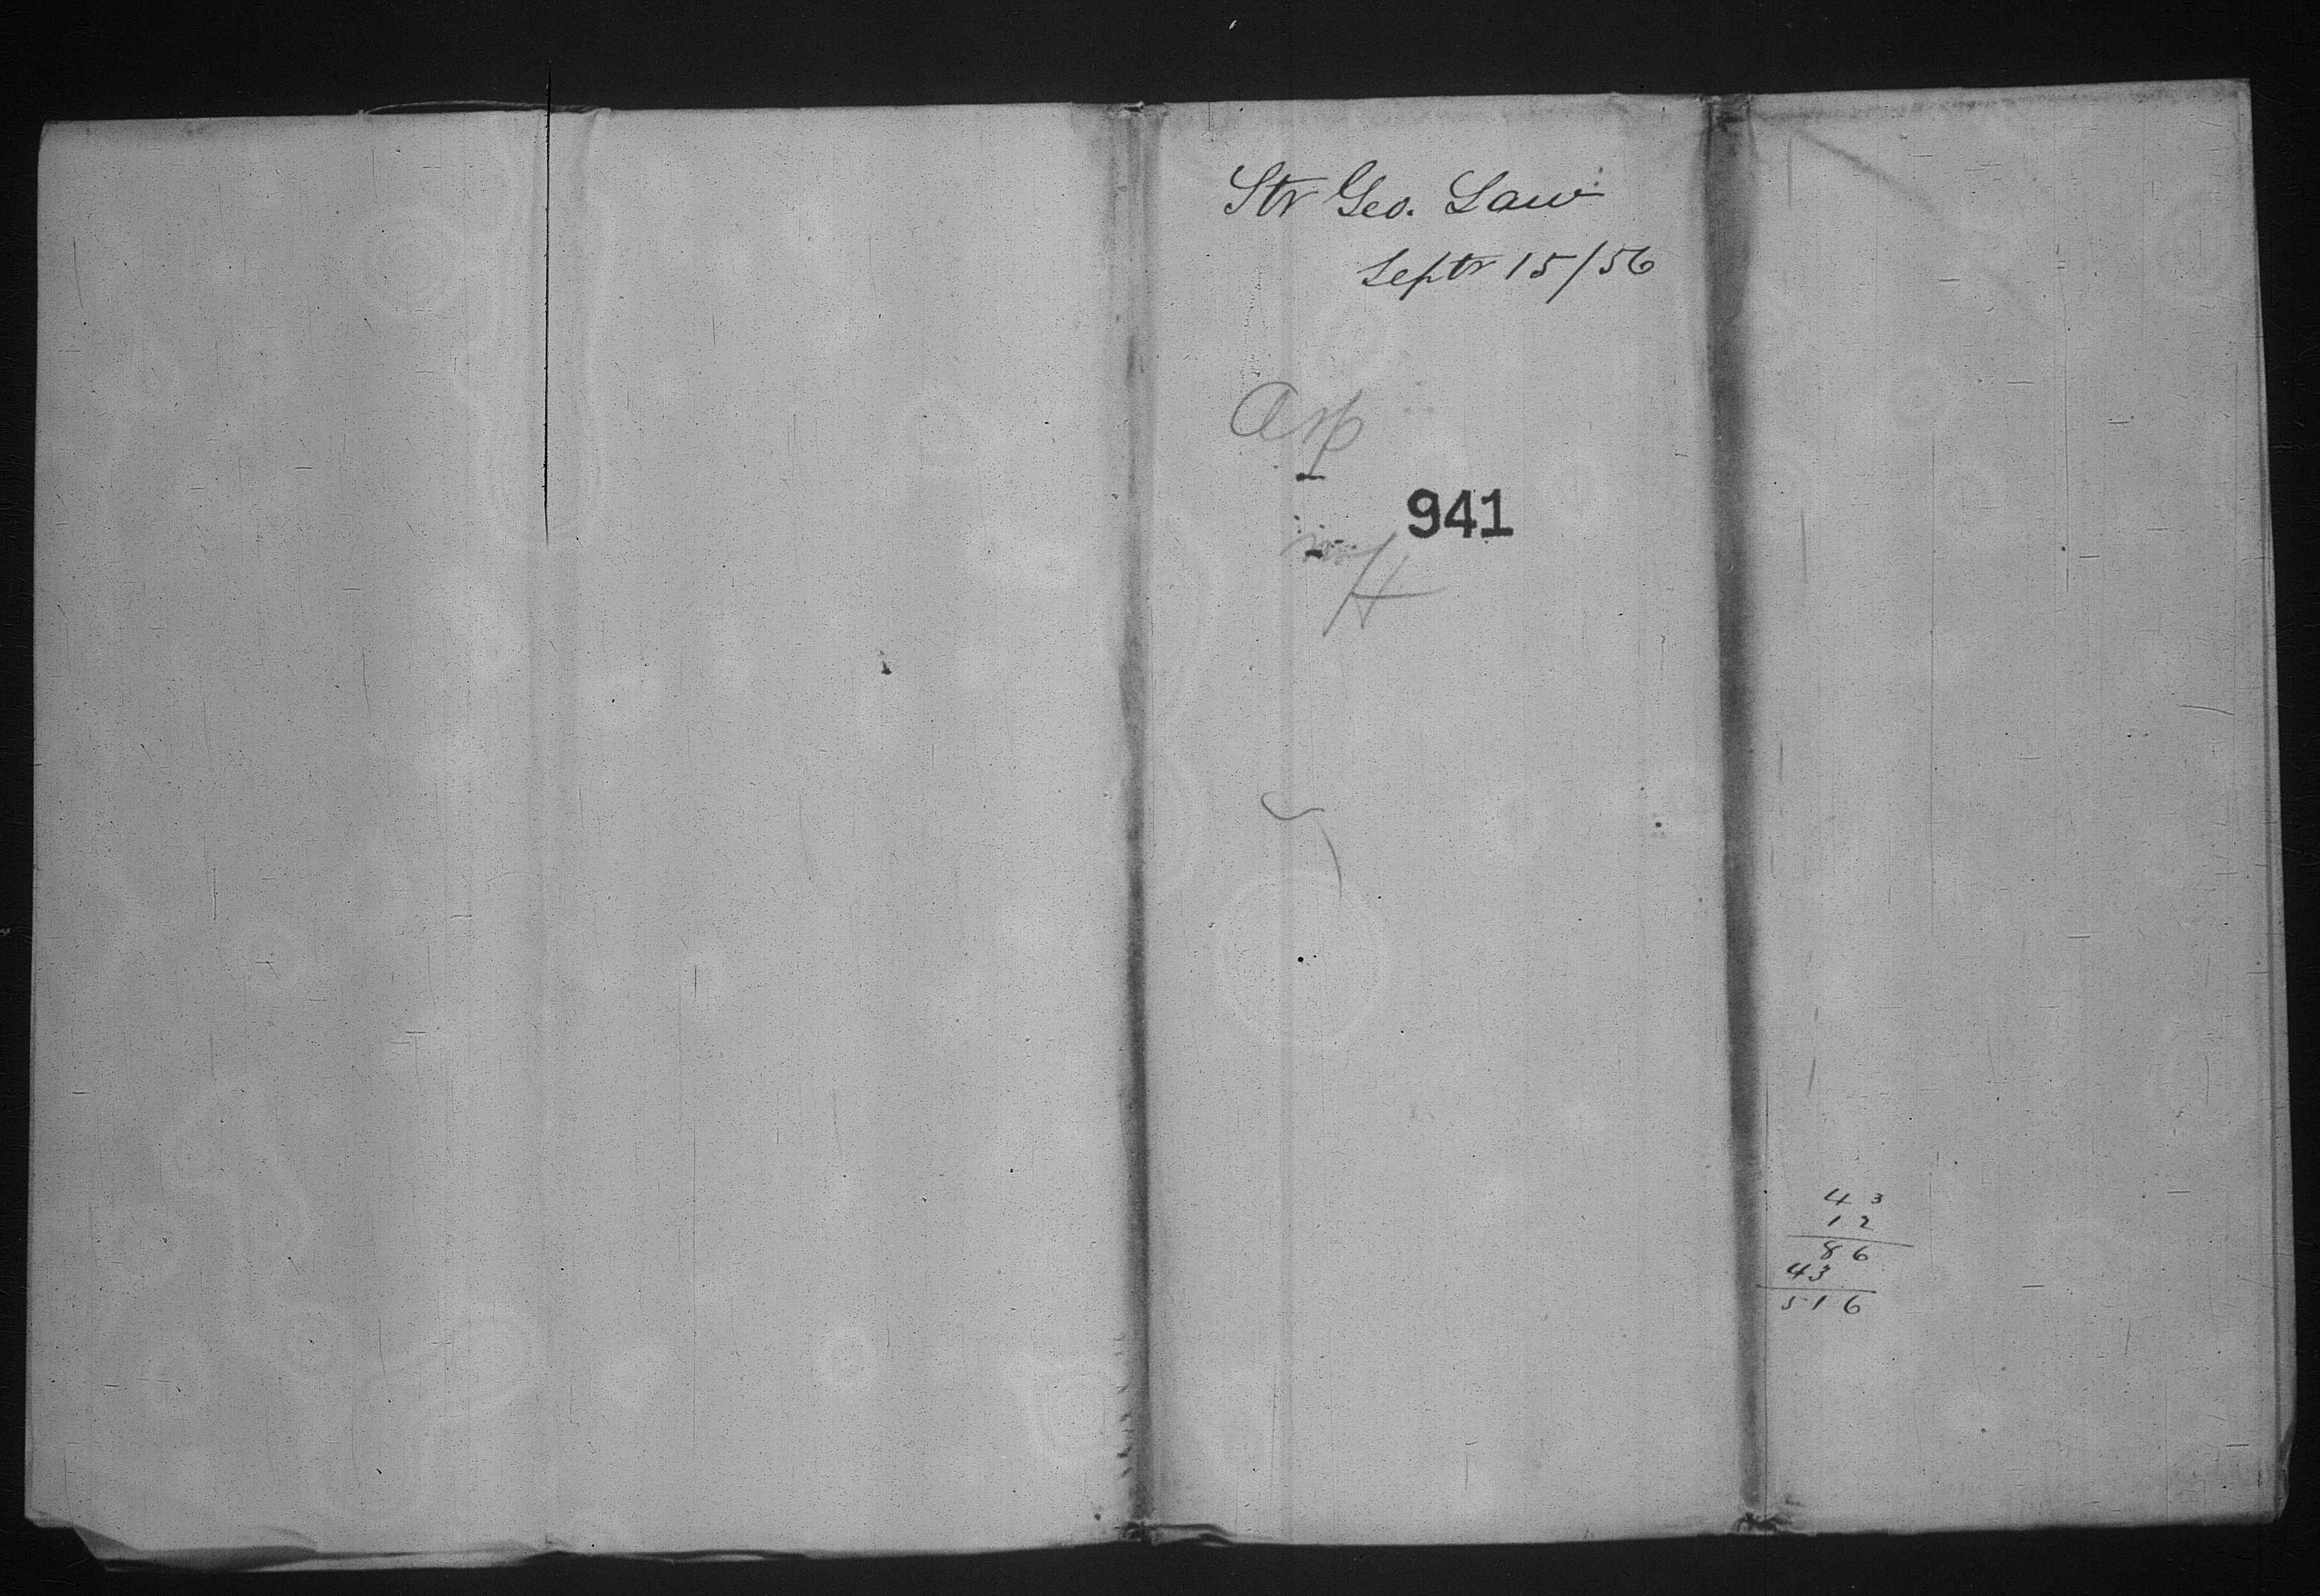 Str Geo. Law
Septr 15/56
Asp
941
H
43
12
86
43
516